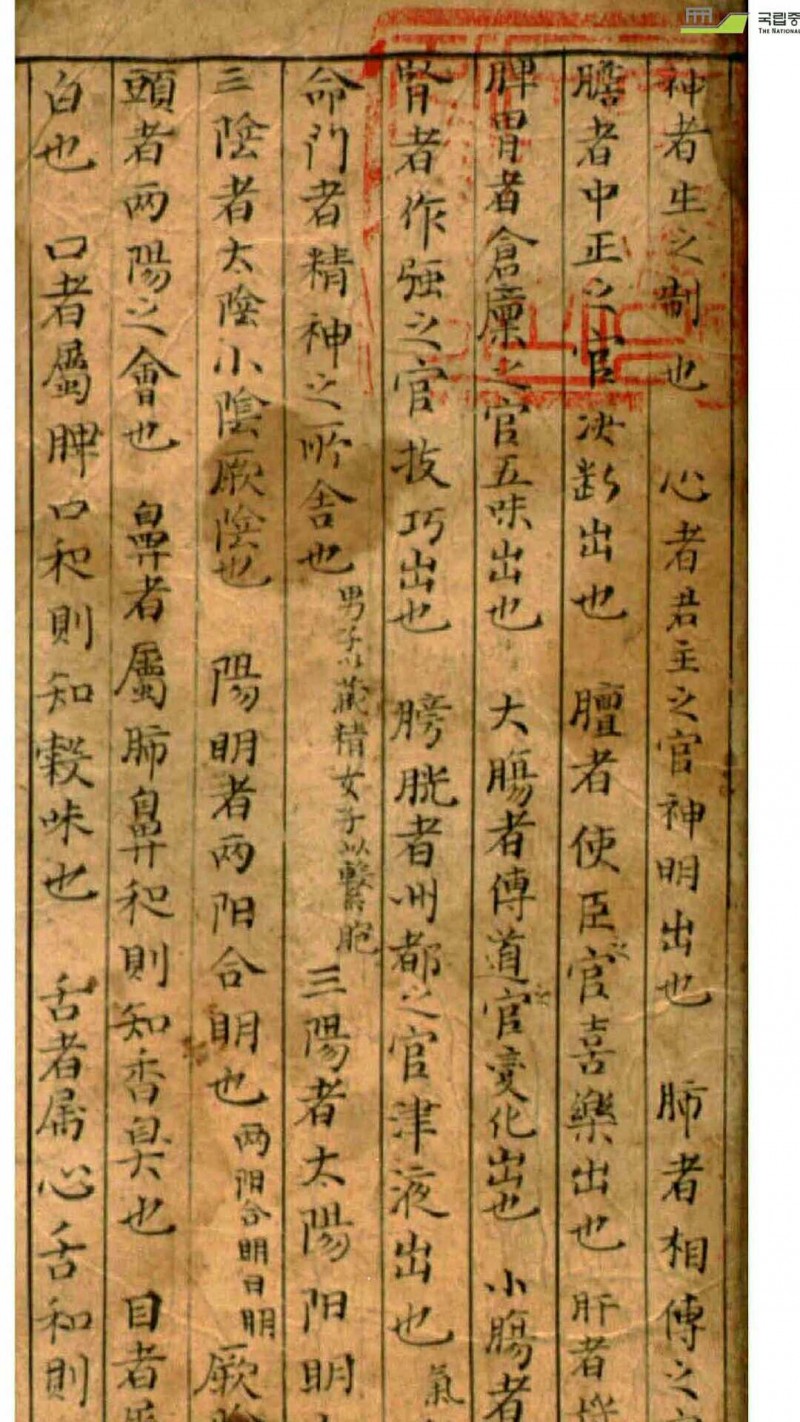 国립중
THE NATIONAL
神者生之制也 心者君主之官神明出也 肺者相傅之
膽者中正之官决断出也 膻者使臣官喜樂出也 肝者
脾胃者倉廪之官五味出也 大腸者傳道官変化出也 小腸者
腎者作强之官技巧出也 膀胱者州都之官津液出也 氣
命門者精神之所舎也 男子以蔵精女子以繫胞 三陽者太陽阳明
三陰者太陰小陰厥陰也 陽明者两阳合明也 两阳合明曰明 厥
頭者两陽之會也 鼻者屬肺鼻和則知香臭也 目者
白也 口者屬脾口和則知糓味也 舌者属心舌和則